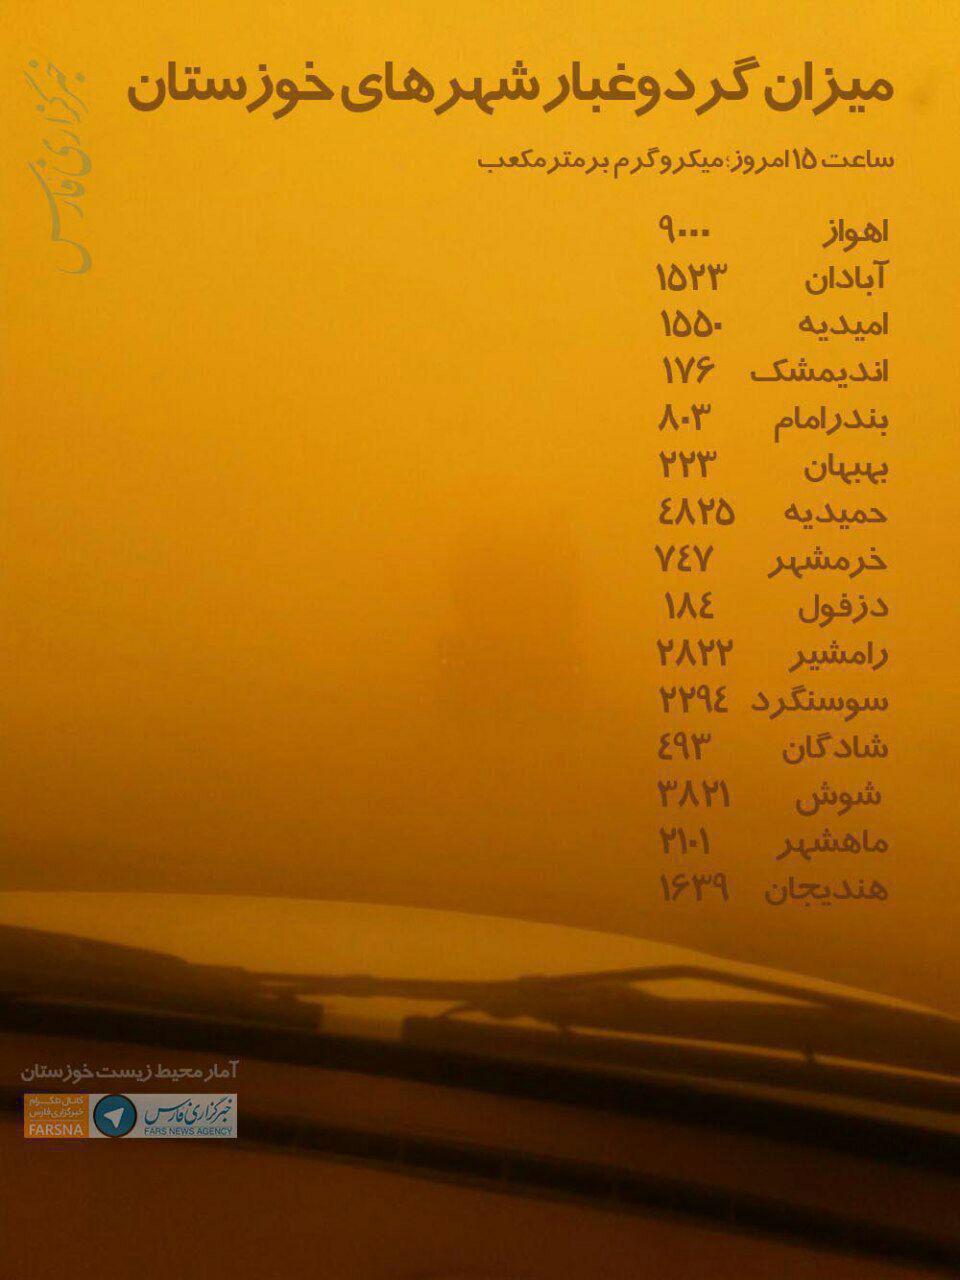 میزان گردوغبار شهرهای خوزستان
خبرگزاری فارس
ساعت ۱۵ امروز؛ میکروگرم بر متر مکعب
اهواز ۹۰۰۰
آبادان ۱۵۲۳
امیدیه ۱۵۵۰
اندیمشک ۱۷۶
بندرامام ۸۰۳
بهبهان ۲۲۳
حمیدیه ٤۸۲۵
خرمشهر ۷٤۷
دزفول ۱۸٤
رامشیر ۲۸۲۲
سوسنگرد ۲۲۹٤
شادگان ٤۹۳
شوش ۳۸۲۱
ماهشهر ۲۱۰۱
هندیجان ۱۶۳۹
آمار محیط زیست خوزستان
خبرگزاری فارس
FARS NEWS AGENCY
کانال تلگرام
خبرگزاری فارس
FARSNA